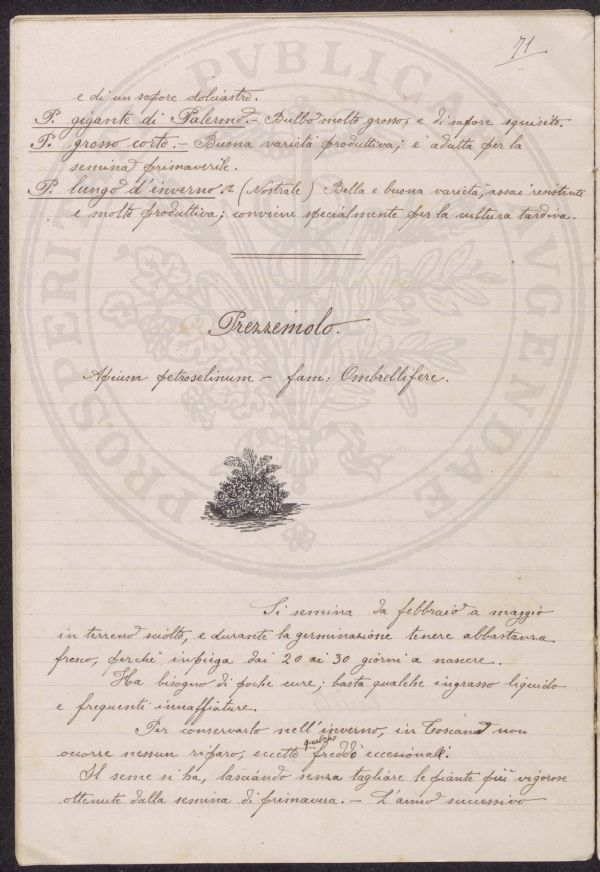 71
e di un sapore dolciastro.
P. gigante di Palermo. - Bulbo molto grosso, e di sapore squisito.
P. grosso corto. - Buona varietà produttiva; è adatta per la
semina primaverile.
P. lungo d'inverno. - (Nostrale) Bella e buona varietà, assai resistente
e molto produttiva; conviene specialmente per la cultura tardiva.
Prezzemolo.
Apium petroselinum - fam: Ombrellifere.
Si semina da febbraio a maggio
in terreno sciolto, e durante la germinazione tenere abbastanza
freno, perchè inpiega dai 20 ai 30 giorni a nascere.
Ha bisogno di poche cure; basta qualche ingrasso liquido
e frequenti innaffiature.
Per conservarlo nell'inverno, in Toscana non
occorre nessun riparo, eccetto qualche freddo eccesionale.
Il seme si ha, lasciando senza tagliare le piante più vigorose
ottenute dalla semina di primavera. - L'anno successivo
PROSPERITATI PVBLICAE AVGENDAE